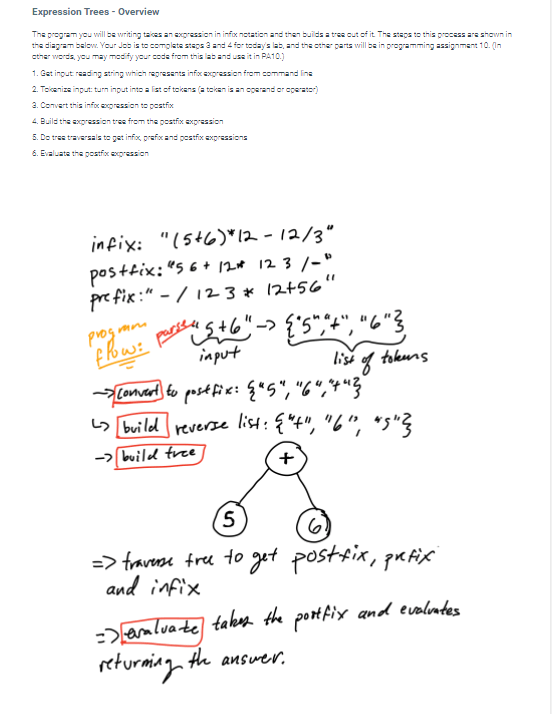 Expression Trees - Overview
The program you will be writing takes an expression in infix notation and then builds a tree out of it. The steps to this process are shown in
the diagram below. Your Job is to complete steps 3 and 4 for today's lab, and the other parts will be in programming assignment 10. (In
other words, you may modify your code from this lab and use it in PA10.)
1. Get input: reading string which represents infix expression from command line
2. Tokenize input: turn input into a list of tokens (a token is an operand or operator)
3. Convert this infix expression to postfix
4. Build the expression tree from the postfix expression
5. Do tree traversals to get infix, prefix and postfix expressions
6. Evaluate the postfix expression
infix: "(5+6)*12 - 12/3"
postfix: "5 6 + 12* 12 3 /-"
prefix: " - / 12 3 * 12+56"
program flow: parse "5+6" -> {"5" "+", "6"}
input list of tokens
-> convert to postfix: {"5", "6", "+"}
↳ build reverse list: {"+", "6", "5"}
-> build tree
+
5 6
=> traverse tree to get postfix, prefix
and infix
=> evaluate takes the postfix and evaluates
returning the answer.